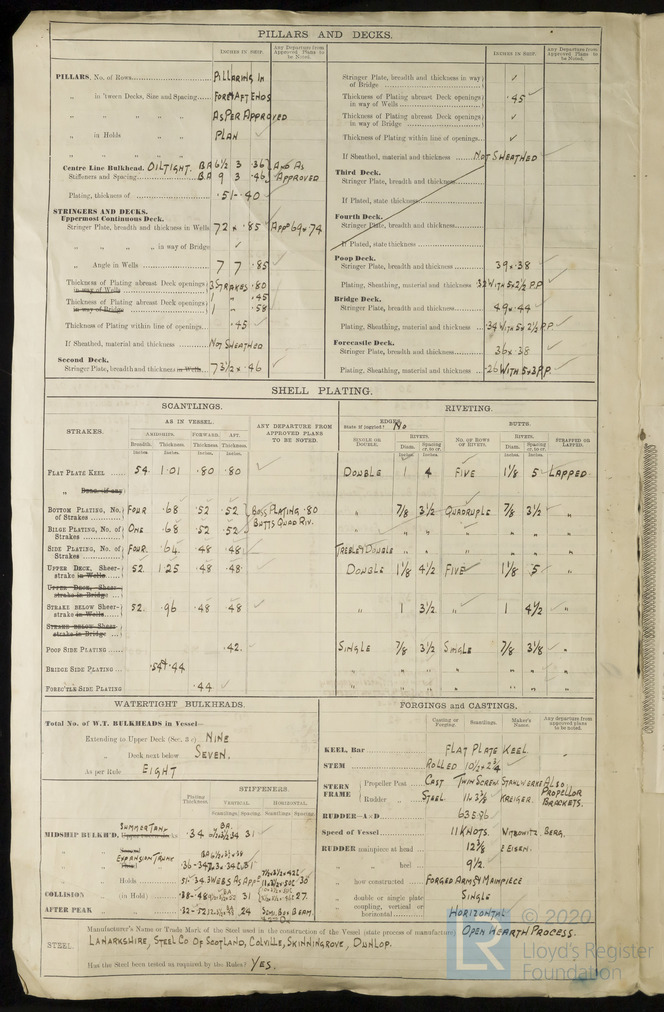 PILLARS AND DECKS.
INCHES IN SHIP.
Any Departure from Approved Plans to be Noted.
INCHES IN SHIP.
Any Departure from Approved Plans to be Noted.
PILLARS, No. of Rows PILLARING IN
„ in 'tween Decks, Size and Spacing FORE & AFT ENDS
„ „ „ „ AS PER APPROVED
„ in Holds „ „ PLAN
„ „ „ „
Centre Line Bulkhead. OILTIGHT. BA 6½ 3 .36 AND AS
Stiffeners and Spacing BA 9 3 .46 APPROVED
Plating, thickness of .51-.40
STRINGERS AND DECKS.
Uppermost Continuous Deck.
Stringer Plate, breadth and thickness in Wells 72 x .85 APPD 69 x 74
„ „ „ „ in way of Bridge ✓
„ Angle in Wells 7 7 .85
Thickness of Plating abreast Deck openings in way of Wells 3 STRAKES .80
1 „ .45
Thickness of Plating abreast Deck openings in way of Bridge 1 „ .58
Thickness of Plating within line of openings .45
If Sheathed, material and thickness NOT SHEATHED
Second Deck.
Stringer Plate, breadth and thickness in Wells 73½ x .46
Stringer Plate, breadth and thickness in way of Bridge ✓
Thickness of Plating abreast Deck openings in way of Wells .45
Thickness of Plating abreast Deck openings in way of Bridge ✓
Thickness of Plating within line of openings ✓
If Sheathed, material and thickness NOT SHEATHED
Third Deck.
Stringer Plate, breadth and thickness
If Plated, state thickness
Fourth Deck.
Stringer Plate, breadth and thickness
If Plated, state thickness
Poop Deck.
Stringer Plate, breadth and thickness 39 x .38
Plating, Sheathing, material and thickness .32 WITH 5 x 2½ P.P.
Bridge Deck.
Stringer Plate, breadth and thickness 49 x .44
Plating, Sheathing, material and thickness .34 WITH 5 x 2½ P.P.
Forecastle Deck.
Stringer Plate, breadth and thickness 36 x .38
Plating, Sheathing, material and thickness .26 WITH 5 x 3 P.P.
SHELL PLATING.
SCANTLINGS.
RIVETING.
STRAKES.
AS IN VESSEL.
AMIDSHIPS. FORWARD. AFT.
Breadth. Thickness. Thickness. Thickness.
Inches. Inches. Inches. Inches.
ANY DEPARTURE FROM APPROVED PLANS TO BE NOTED.
EDGES.
State if joggled? No
SINGLE OR DOUBLE.
RIVETS.
Diam. Spacing cr. to cr.
Inches Inches
BUTTS.
No. OF ROWS OF RIVETS.
RIVETS.
Diam. Spacing cr. to cr.
Inches Inches
STRAPPED OR LAPPED.
FLAT PLATE KEEL 54 1.01 .80 .80 DOUBLE 1 4 FIVE 1⅛ 5 LAPPED
„ Dble. (if any)
BOTTOM PLATING, No. of Strakes FOUR .68 .52 .52 BOSS PLATING .80 „ 7/8 3½ QUADRUPLE 7/8 3½ „
BUTTS QUAD RIV.
BILGE PLATING, No. of Strakes ONE .68 .52 .52 „ „ „ „ „ „ „
SIDE PLATING, No. of Strakes FOUR .64 .48 .48 TREBLE & DOUBLE „ „ „ „ „ „
UPPER DECK, Sheerstrake in Wells 52 1.25 .48 .48 DOUBLE 1⅛ 4½ FIVE 1⅛ 5 „
UPPER DECK, Sheerstrake in Bridge
STRAKE BELOW Sheerstrake in Wells 52 .96 .48 .48 „ 1 3½ „ 1 4½ „
STRAKE BELOW Sheerstrake in Bridge
POOP SIDE PLATING .42 SINGLE 7/8 3½ SINGLE 7/8 3⅛ „
BRIDGE SIDE PLATING .54 & .44 „ „ „ „ „ „ „
FORE'TLE SIDE PLATING .44 „ „ „ „ „ „ „
WATERTIGHT BULKHEADS.
Total No. of W.T. BULKHEADS in Vessel—
Extending to Upper Deck (Sec. 3 c) NINE
„ Deck next below SEVEN.
As per Rule EIGHT
STIFFENERS.
Plating Thickness
VERTICAL HORIZONTAL.
Scantlings Spacing Scantlings Spacing
SUMMER TANK
MIDSHIP BULKH'D, .34 31
EXPANSION TRUNK
„ Holds
COLLISION (in Hold) 31 27
AFTER PEAK
FORGINGS and CASTINGS.
Casting or Forging. Scantlings. Maker's Name. Any departure from approved plans to be noted.
KEEL, Bar FLAT PLATE KEEL.
STEM ROLLED 10½ x 2¾
STERN FRAME
Propeller Post CAST TWIN SCREW. STAHLWERKE ALSO PROPELLOR BRACKETS.
Rudder „ STEEL 11 x 3⅜ KREIGER.
RUDDER—A×D 635.86
Speed of Vessel 11 KNOTS. WITKOWITZ. BERG.
RUDDER mainpiece at head 12⅜ & EISEN.
„ „ heel 9½
„ how constructed FORGED ARMS & MAINPIECE
„ double or single plate SINGLE
„ coupling, vertical or horizontal HORIZONTAL
STEEL.
Manufacturer's Name or Trade Mark of the Steel used in the construction of the Vessel (state process of manufacture) OPEN HEARTH PROCESS.
LANARKSHIRE, STEEL CO OF SCOTLAND, COLVILLE, SKINNINGROVE, DUNLOP.
Has the Steel been tested as required by the Rules? YES.
© 2020
LR
Lloyd's Register
Foundation